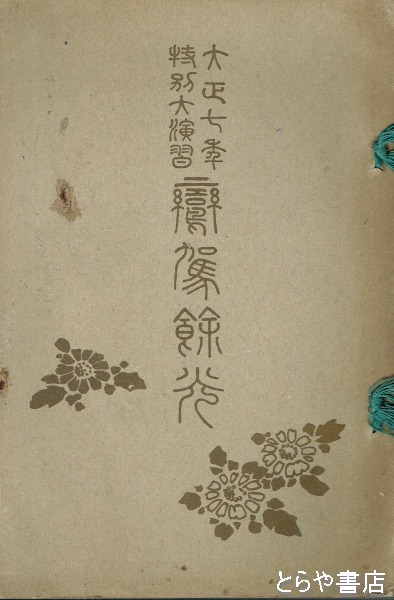 大正七年
特別大演習
鸞駕餘光
とらや書店